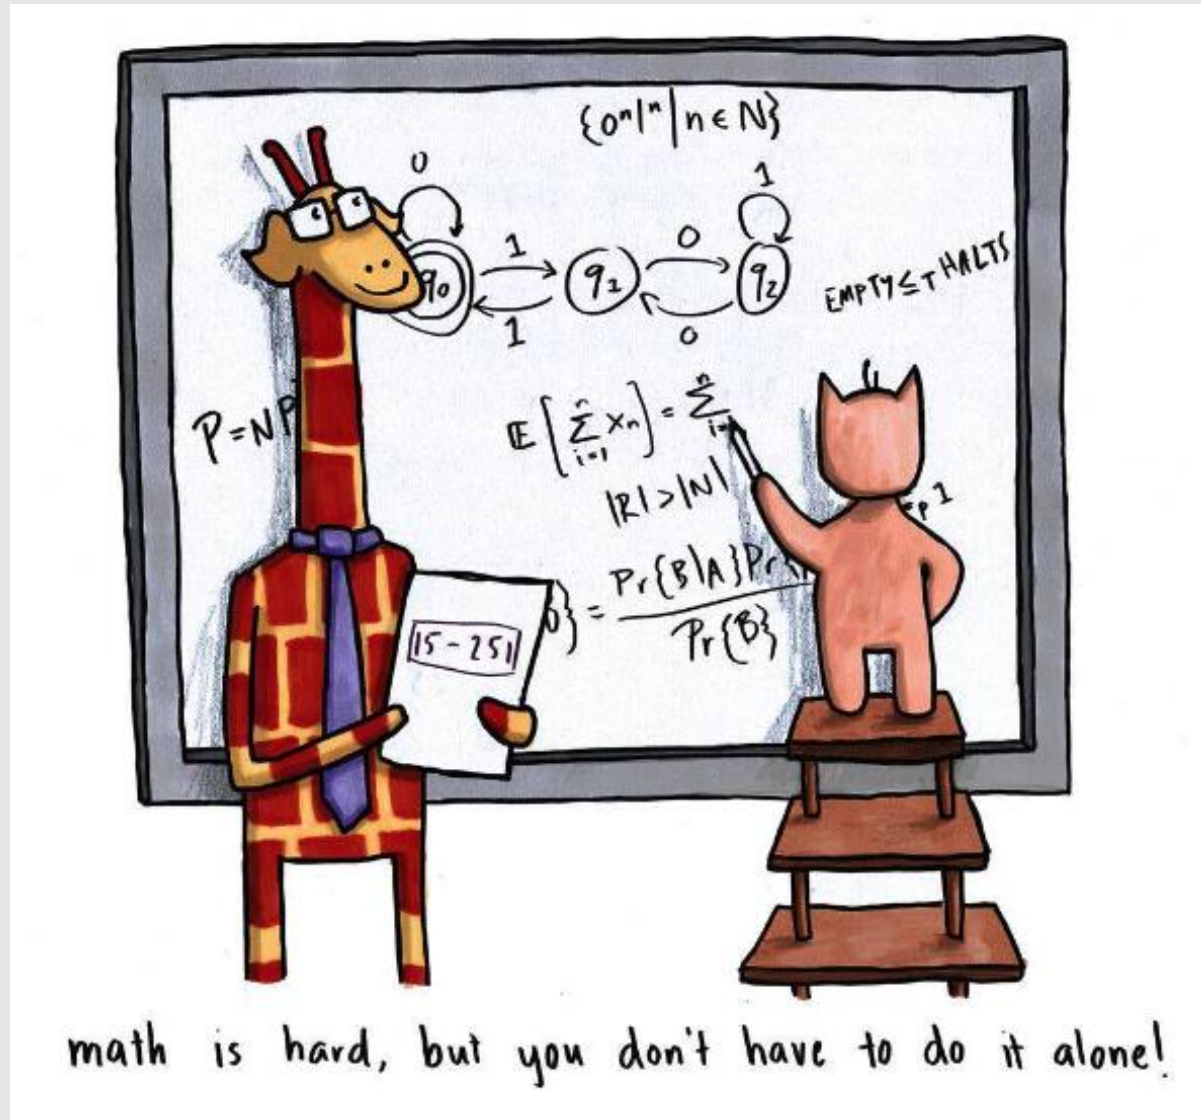 {0ⁿ1ⁿ|n∈N}
0
1
1
0
q₀
q₁
q₂
1
0
EMPTY ≤T HALTS
P=NP
E[∑ⁿᵢ₌₁ xₙ] = ∑ⁿᵢ₌
|R|>|N|
= Pr{B|A}Pr{
Pr{B}
15-251
math is hard, but you don't have to do it alone!